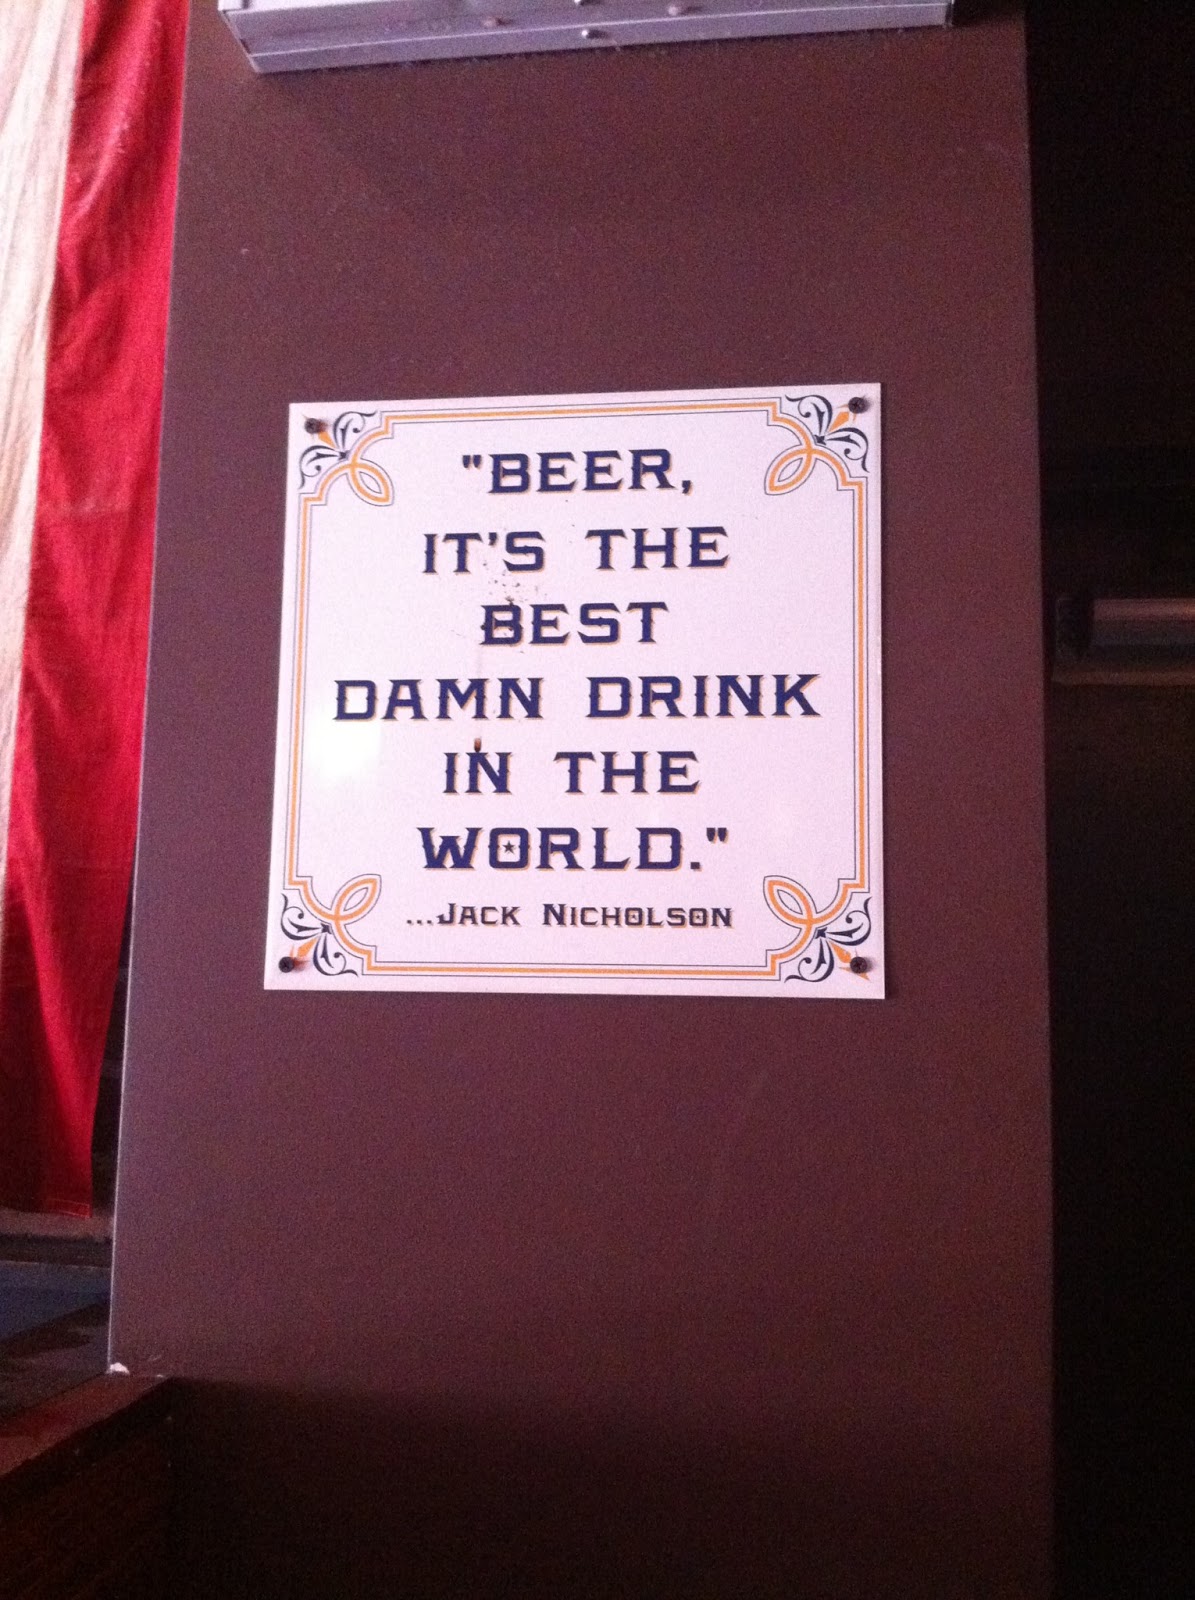 "BEER,
IT'S THE
BEST
DAMN DRINK
IN THE
WORLD."
...JACK NICHOLSON